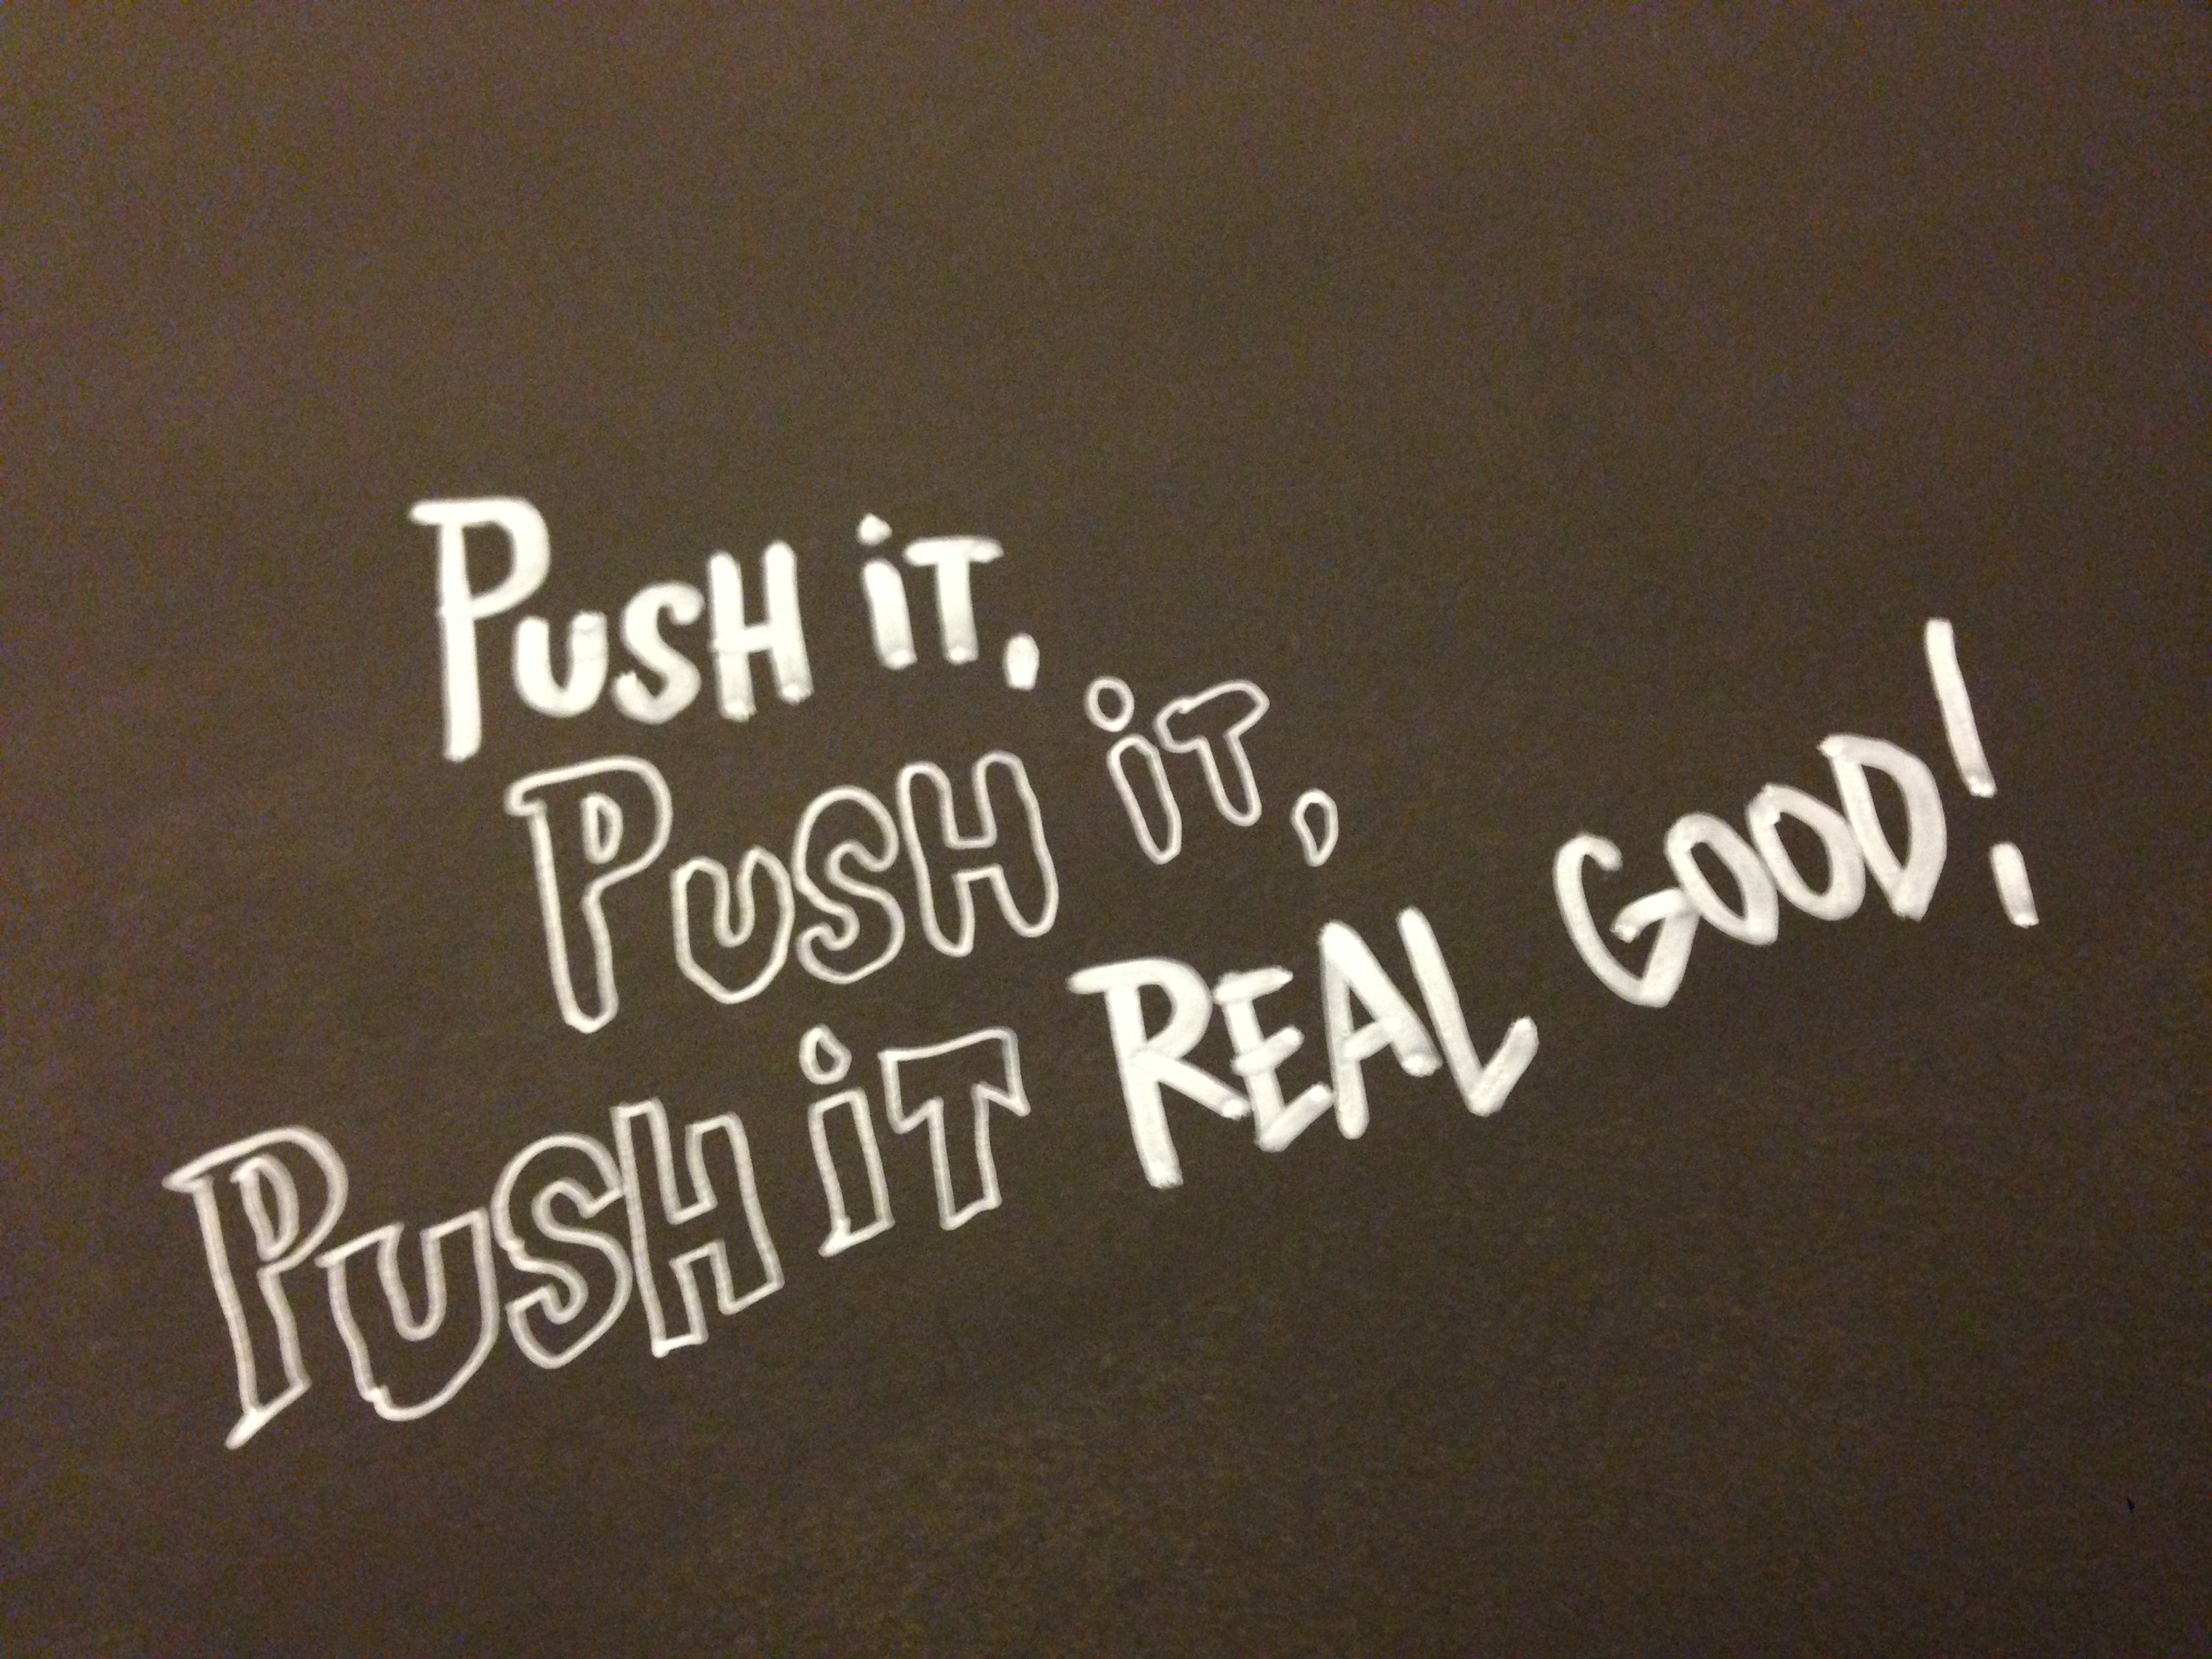 PUSH iT,
PUSH iT,
PUSH iT REAL GOOD!